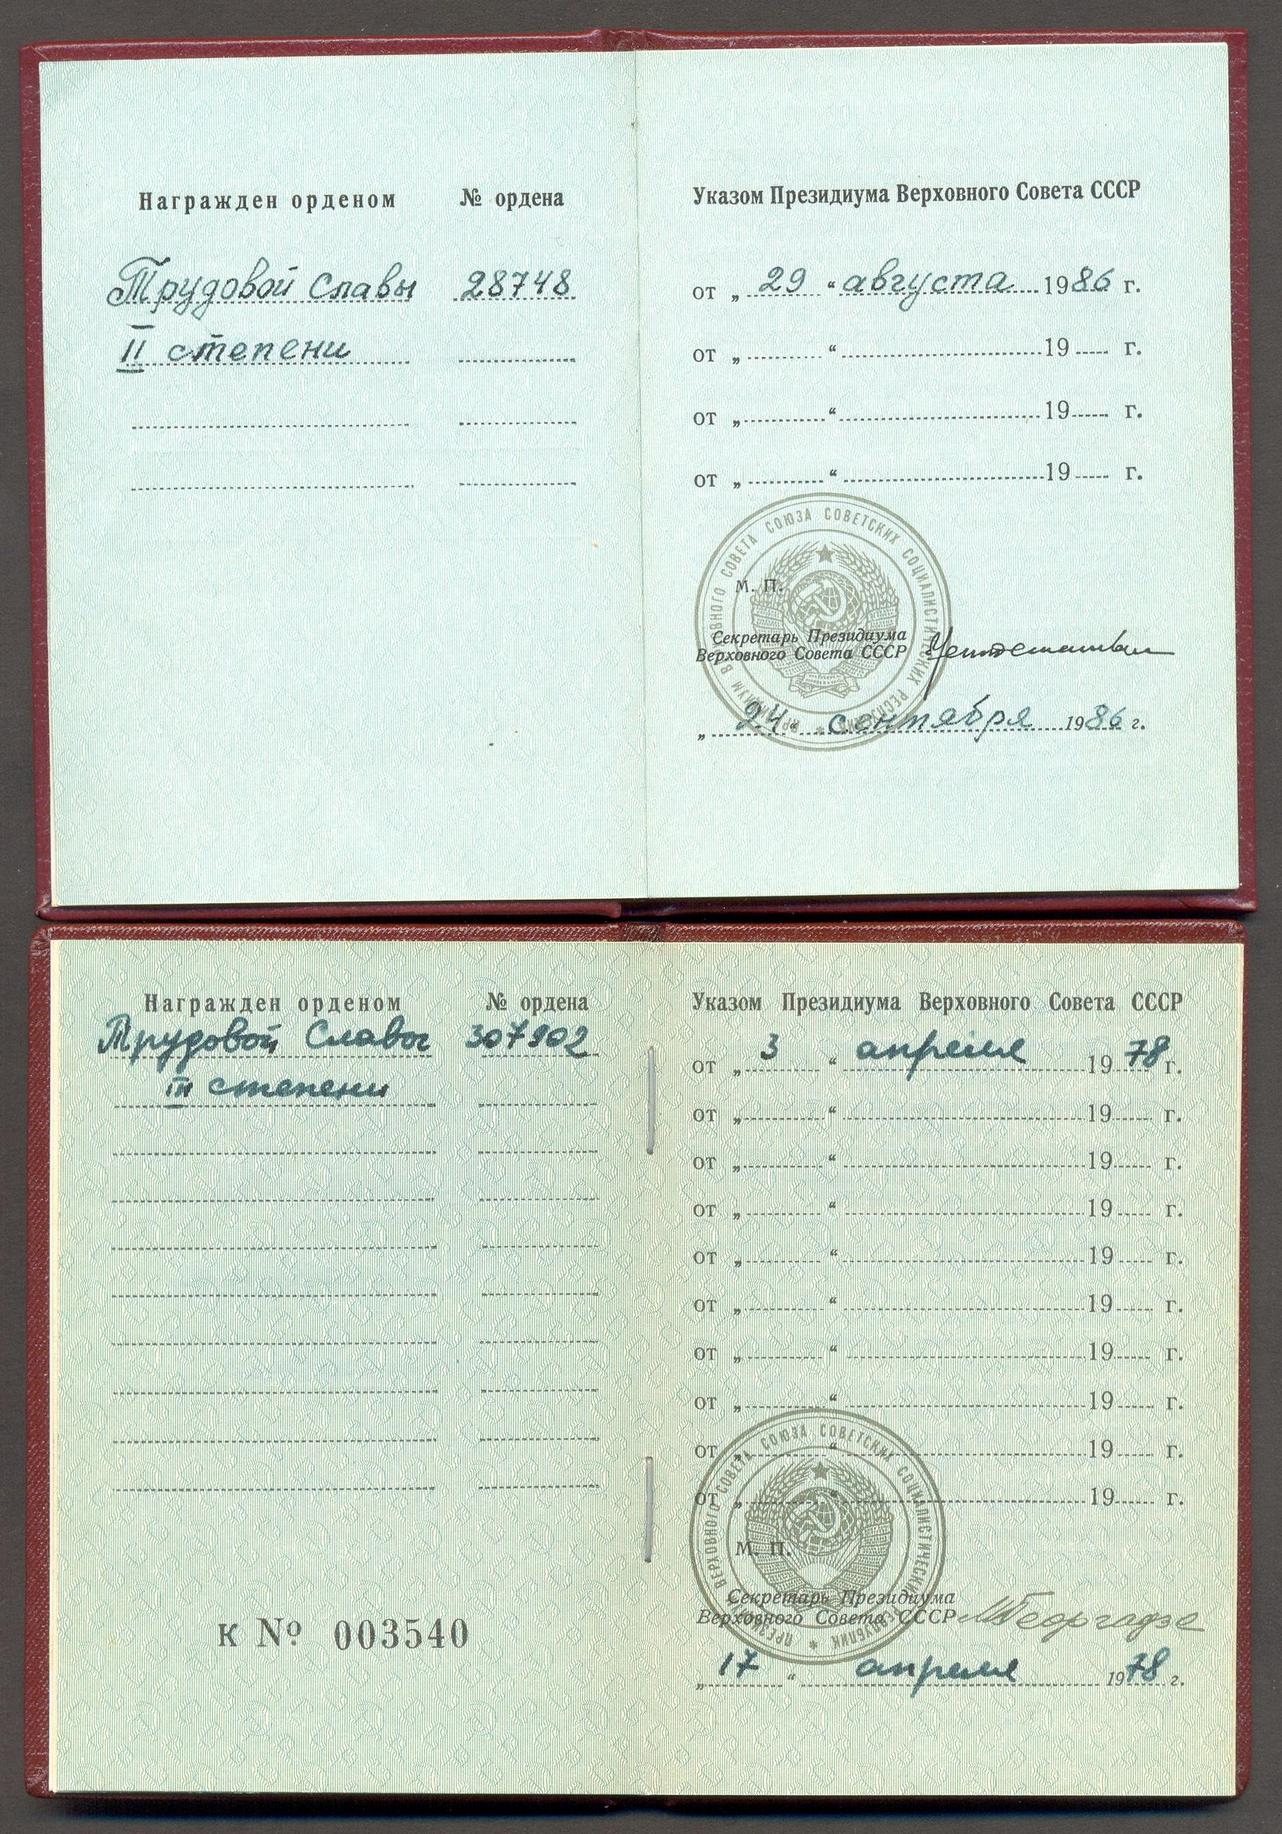 Награжден орденом № ордена
Трудовой Славы 28748
II степени
Указом Президиума Верховного Совета СССР
от „ 29 “ августа 1986 г.
от „ “ 19 г.
от „ “ 19 г.
от „ “ 19 г.
ПРЕЗИДИУМ ВЕРХОВНОГО СОВЕТА СОЮЗА СОВЕТСКИХ СОЦИАЛИСТИЧЕСКИХ РЕСПУБЛИК
М. П.
Секретарь Президиума
Верховного Совета СССР
„ 24 “ сентября 1986 г.
Награжден орденом № ордена
Трудовой Славы 307902
III степени
К № 003540
Указом Президиума Верховного Совета СССР
от „ 3 “ апреля 1978 г.
от „ “ 19 г.
от „ “ 19 г.
от „ “ 19 г.
от „ “ 19 г.
от „ “ 19 г.
от „ “ 19 г.
от „ “ 19 г.
от „ “ 19 г.
от „ “ 19 г.
ПРЕЗИДИУМ ВЕРХОВНОГО СОВЕТА СОЮЗА СОВЕТСКИХ СОЦИАЛИСТИЧЕСКИХ РЕСПУБЛИК
М. П.
Секретарь Президиума
Верховного Совета СССР МГеоргадзе
„ 17 “ апреля 1978 г.